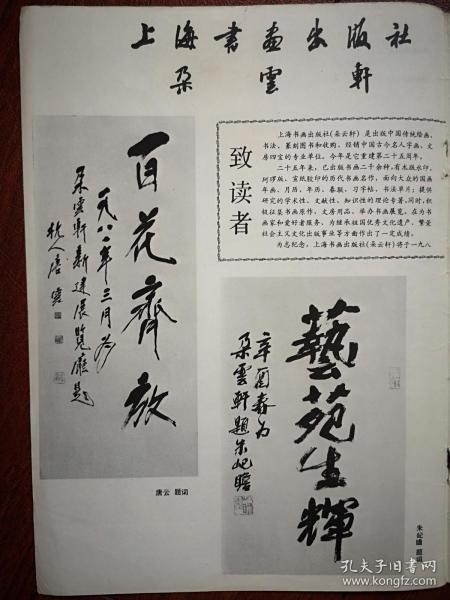 上海书画出版社
朵云轩
致读者
上海书画出版社(朵云轩)是出版中国传统绘画、
书法、篆刻图书和收购、经销中国古今名人字画、文
房四宝的专业单位。今年是它重建第二十五周年。
二十五年来，已出版书画二千余种，有木版水印、
珂珞版、宣纸胶印的历代书画名作，面向大众的国画
年画、月历、年历、春联、习字帖、书法单片；提供
研究的学术性、文献性、知识性的理论专著，同时，积
极征集书画原作，文房用品，举办书画展览，在为书
画家和爱好者服务，为继承祖国优秀文化遗产、繁荣
社会主义文化出版事业等方面作出了一定成绩。
为志纪念，上海书画出版社(朵云轩)将于一九八
百花齊放
一九八一年三月为
朵雲軒新建展覽廳題
杭人唐雲
唐云 题词
藝苑生輝
辛酉春为
朵雲軒題朱屺瞻
朱屺瞻 题词
孔夫子旧书网
www.kongfz.com